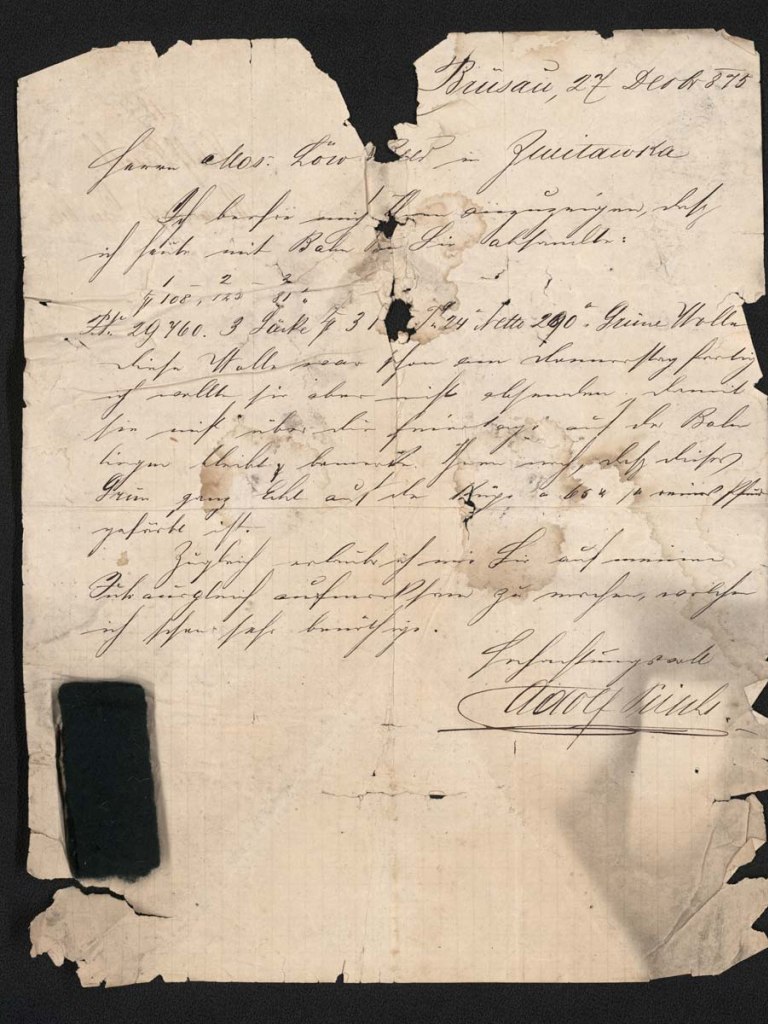 Brüsau, 27 Decbr 875
Herrn Mos: Löw feld in Zwittawka
Ich beehre mich Ihnen anzuzeigen, daß
ich heute mit Bahn an Sie absandte:
1 – 2 – 3
108, 123 81
29760. 3 Säcke 31 24 Netto 290 Grüne Wolle
diese Wolle war schon am Donnerstag fertig
ich wollte sie aber nicht absenden, damit
sie nicht über die Feiertage auf der Bahn
liegen bleibt, bemerke Ihnen noch, daß dieses
Grün ganz Echt auf der Küpe à 65 reines
gefärbt ist.
Zugleich erlaube ich mir Sie auf meinen
ausgleich aufmerksam zu machen, welchen
ich schon sehr benöthige.
Hochachtungsvoll
Adolf